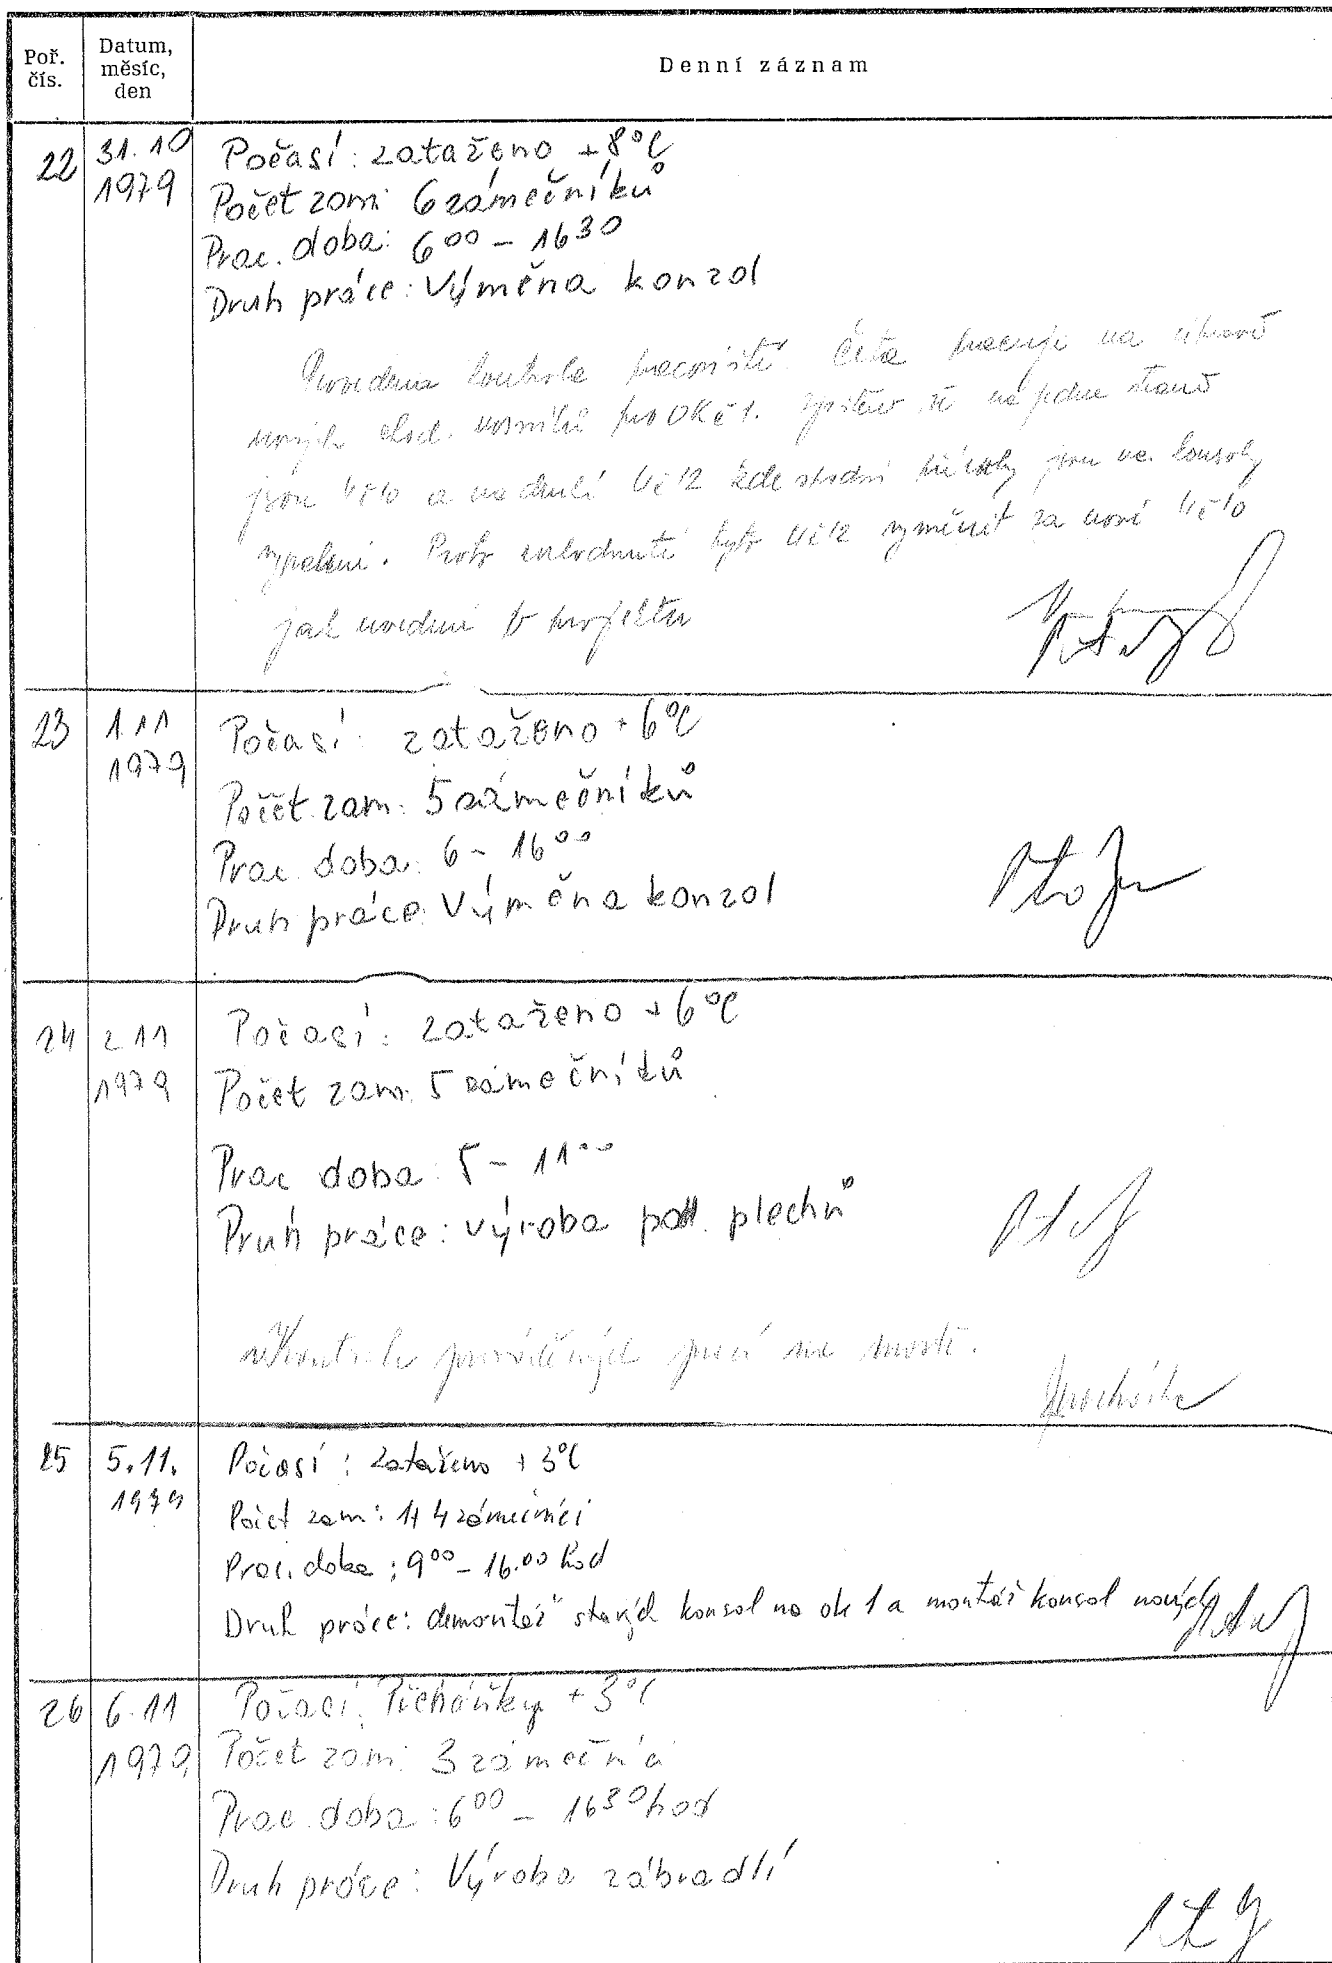 Poř. čís.
Datum, měsíc, den
Denní záznam
22
31.10 1979
Počasí: zataženo +8°C
Počet zam: 6 zámečníků
Prac. doba: 6⁰⁰ - 16³⁰
Druh práce: Výměna konzol
Provedena kontrola pracoviště. Četa pracuje na
nových chod. nosníků pro OK č 1. na jedné straně
jsou a na druhé kde jsou na konsoly
Proto rozhodnuto tyto vyměnit za nové
jak uvedeno v projektu
23
1.11 1979
Počasí: zataženo +6°C
Počet zam: 5 zámečníků
Prac doba: 6 - 16⁰⁰
Druh práce: Výměna konzol
24
2 11 1979
Počasí: zataženo +6°C
Počet zam: 5 zámečníků
Prac doba: 5 - 11⁰⁰
Druh práce: výroba plechů
Kontrola prováděných prací na mostě.
Procházka
25
5.11. 1979
Počasí: Zataženo +3°C
Počet zam: 1+4 zámečníci
Prac. doba: 9⁰⁰ - 16.⁰⁰ hod
Druh práce: demontáž starých konsol na ok 1 a montáž konsol nových
26
6.11 1979
Počasí: Přeháňky +3°C
Počet zam: 3 zámečníci
Prac. doba: 6⁰⁰ - 16³⁰ hod
Druh práce: Výroba zábradlí